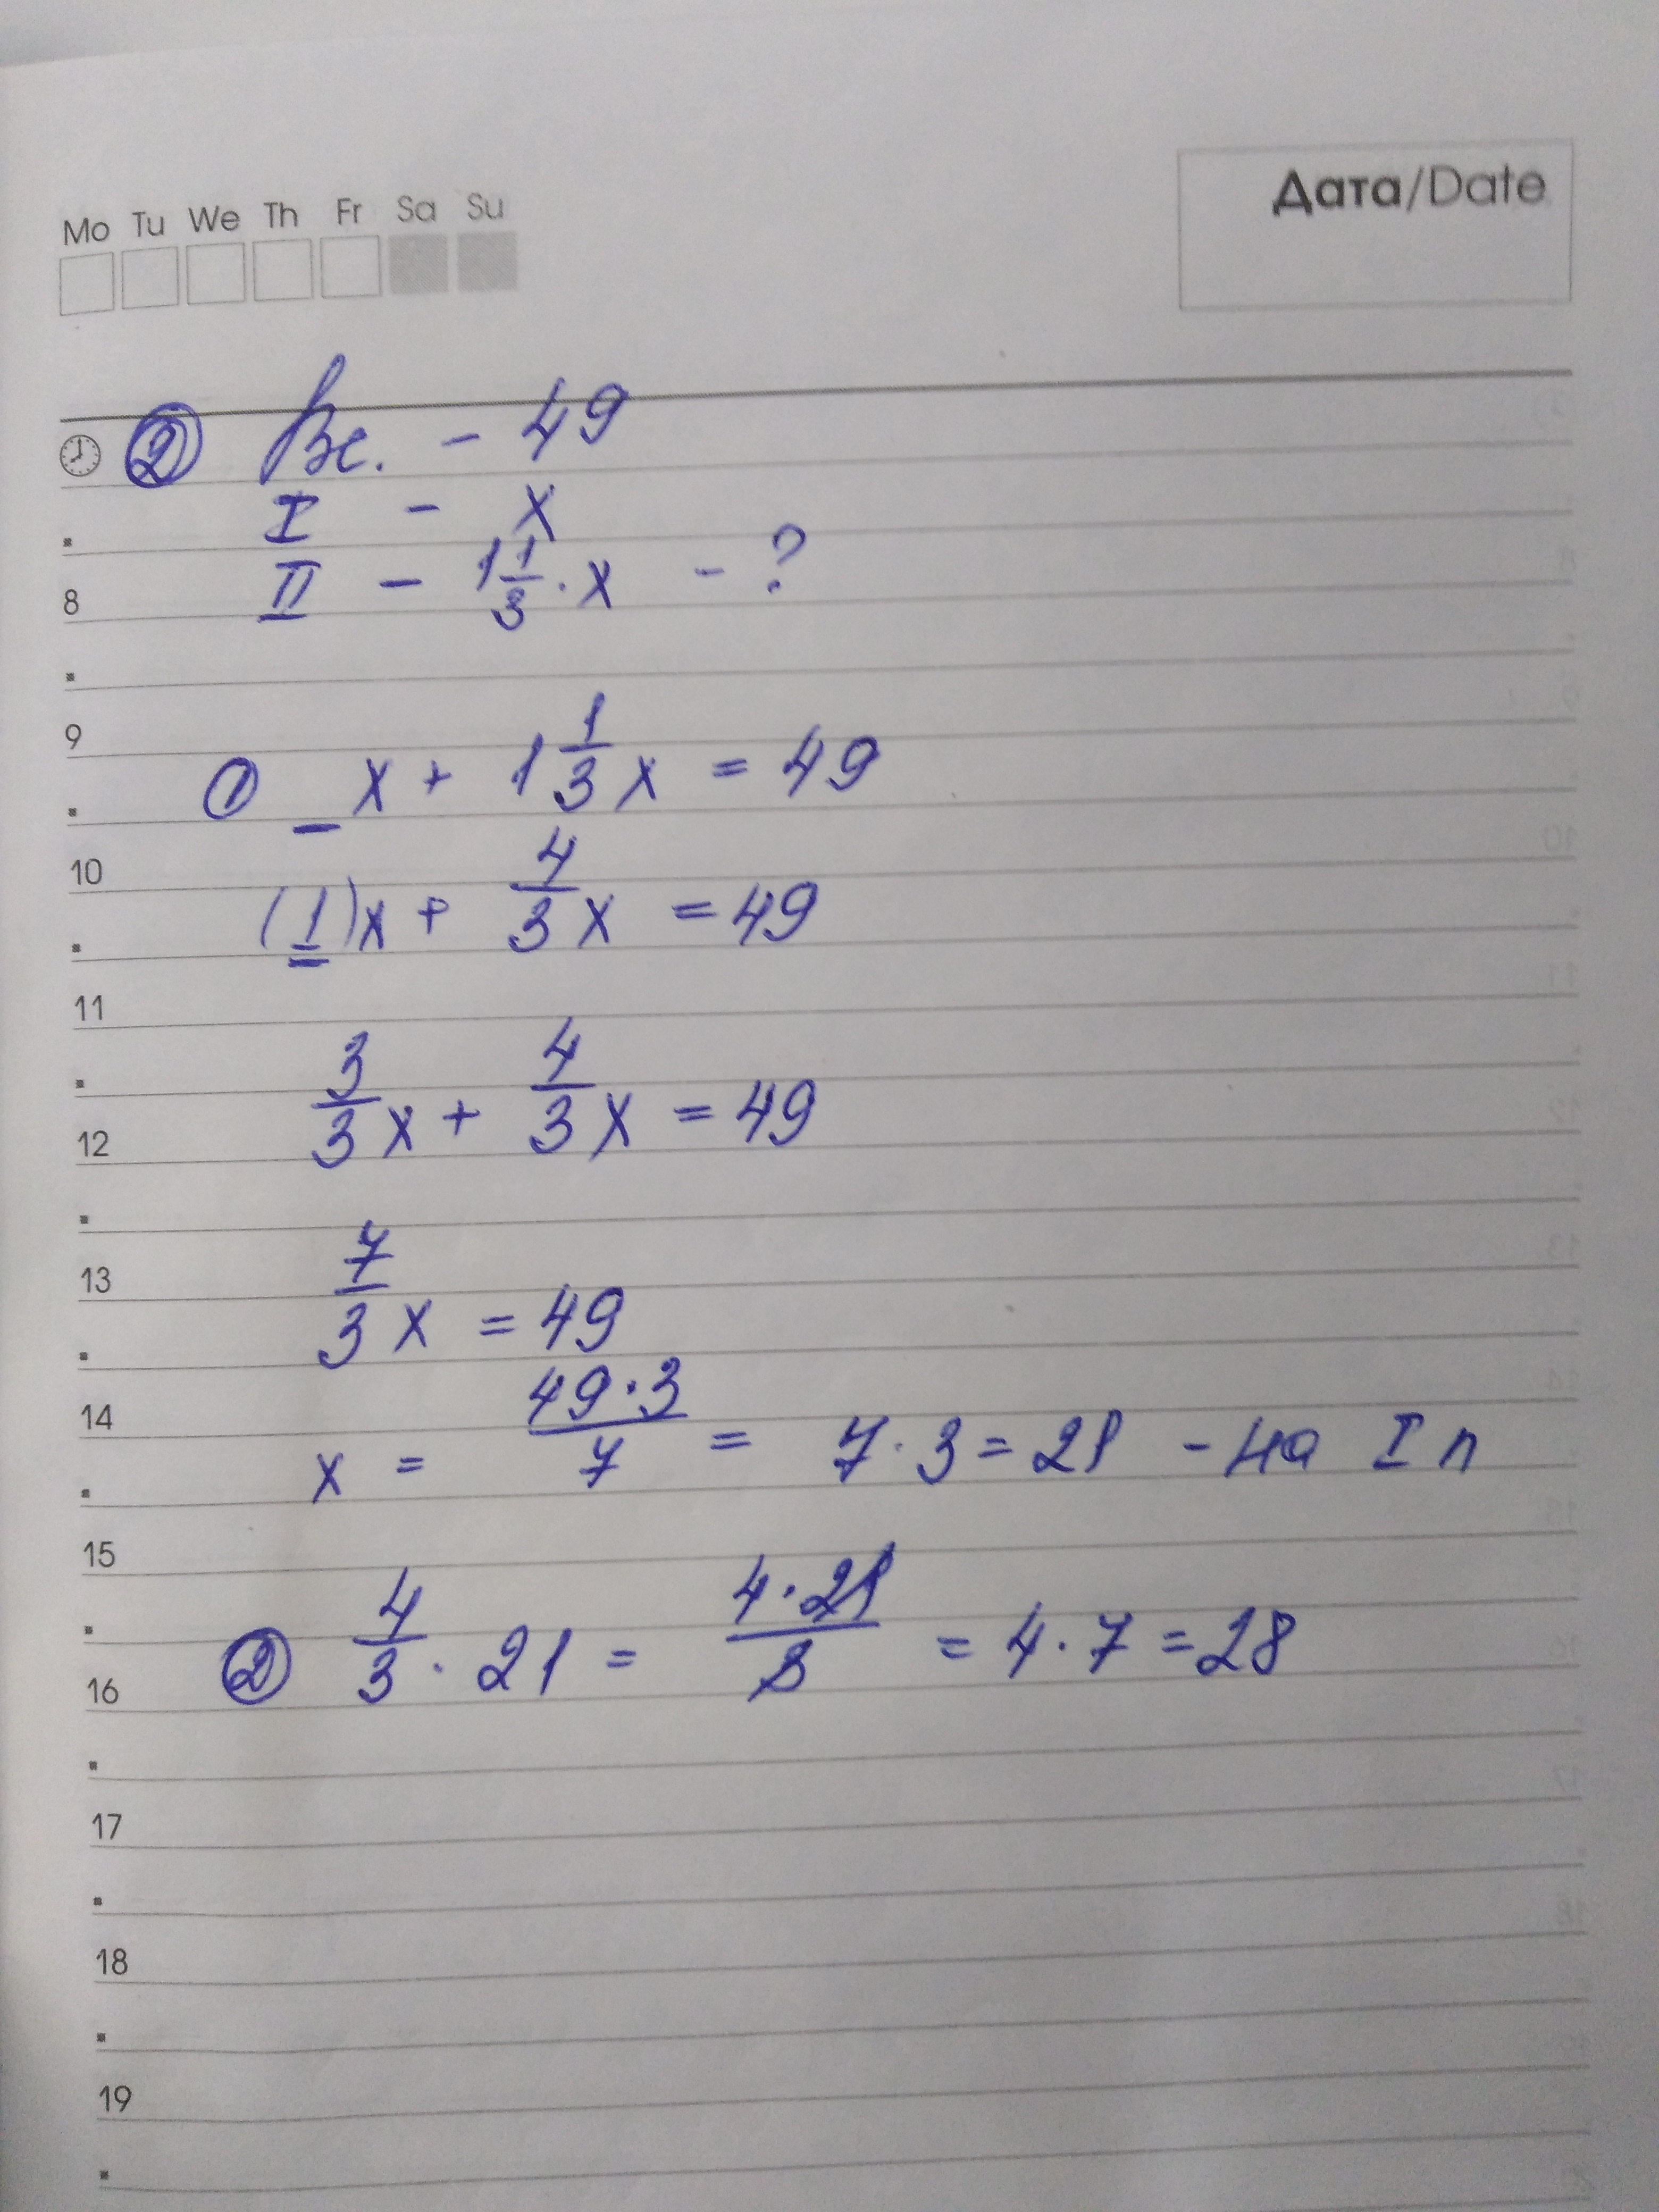 Mo Tu We Th Fr Sa Su
Дата/Date
② Вс. - 49
I - x
8 II - 1 1/3 · x - ?
9
① _ x + 1 1/3 x = 49
10
(1)x + 4/3 x = 49
11
12 3/3 x + 4/3 x = 49
13 7/3 x = 49
14 x = 49·3/7 = 7·3=21 - на I п
15
16 ② 4/3 · 21 = 4·21/3 = 4·7=28
17
18
19